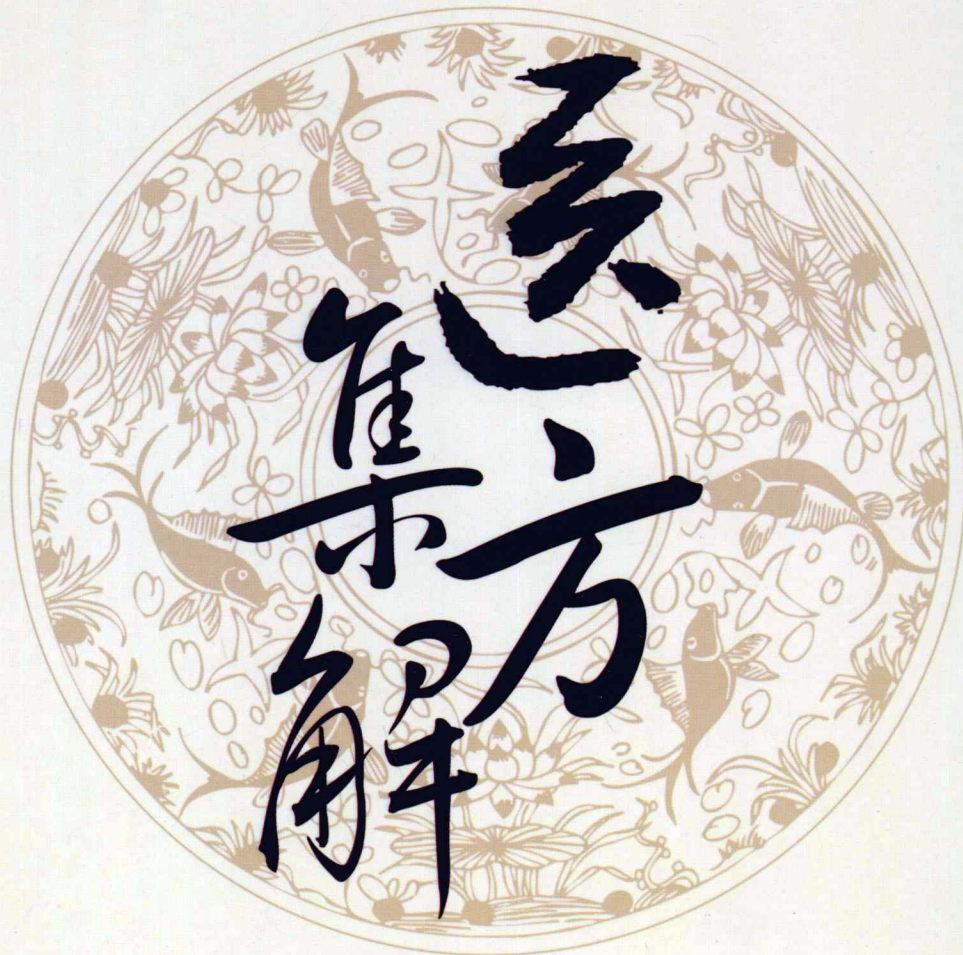 医方
集解